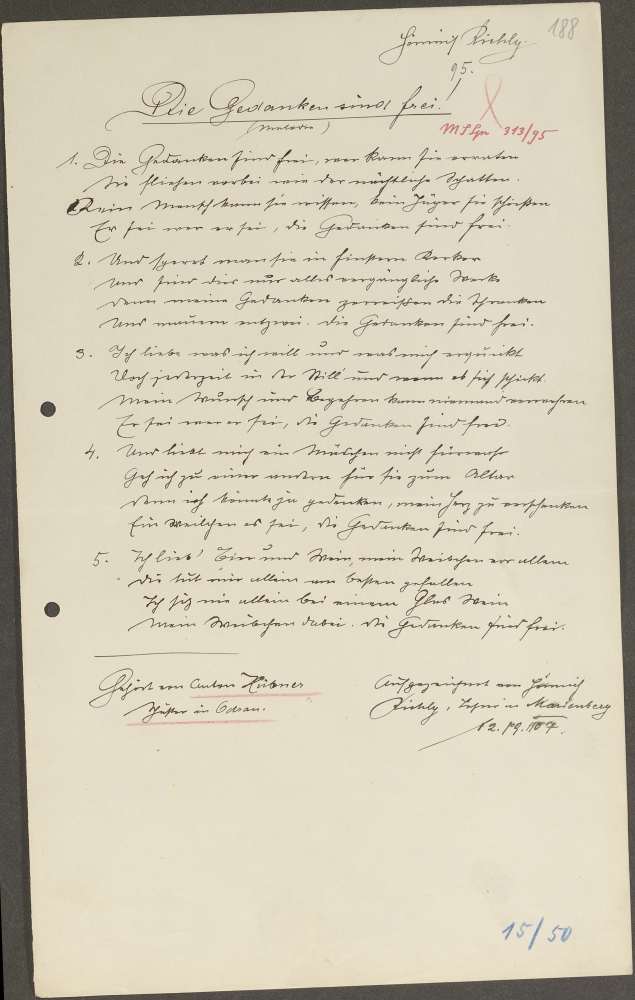 188
Heinrich Richly.
95.
Die Gedanken sind frei.
(Melodie)
MSLgn 313/95
1. Die Gedanken sind frei, wer kann sie erraten
Sie fliehen vorbei wie der nächtliche Schatten.
Kein Mensch kann sie wissen, kein Jäger sie schießen
Er sei wer er sei, die Gedanken sind frei.
2. Und sperrt man sie in finstern Kerker
und sind dies nur alles vergängliche Werke
denn meine Gedanken zerreißen die Schranken
und mauern entzwei. die Gedanken sind frei.
3. Ich liebe was ich will und was mich erquickt
Doch jederzeit in der Still' und wenn es sich schickt.
Mein Wunsch und Begehren kann niemand verwehren
Er sei wer er sei, die Gedanken sind frei.
4. Und liebt mich ein Mädchen nicht
Geh ich zu einer andern für sie zum Altar
denn ich könnte ja gedenken, mein Herz zu verschenken
Ein Weilchen es sei, die Gedanken sind frei.
5. Ich lieb' Bier und Wein, mein Weibchen vor allem
die tut mir allein am besten gefallen
Ich sitz nie allein bei einem Glas Wein
Mein Weibchen dabei. die Gedanken sind frei.
Gehört von Anton Hübner
in Odrau.
Aufgezeichnet von Heinrich
Richly, Lehrer in Marienberg
12./9. 1907.
15/50